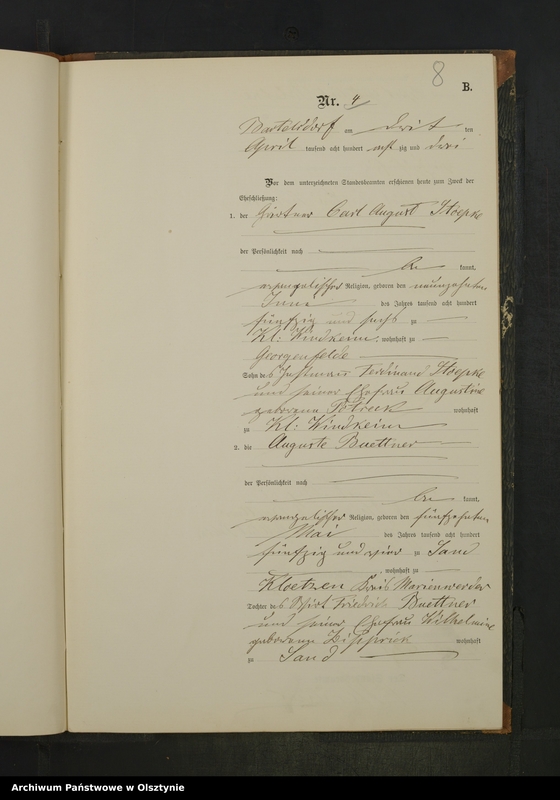 8
B.
Nr. 4
Bartelsdorf am dritten
April tausend acht hundert achtzig und drei
Vor dem unterzeichneten Standesbeamten erschienen heute zum Zweck der
Eheschließung:
1. der Hirtner Carl August Stöepke
der Persönlichkeit nach
be kannt,
evangelischer Religion, geboren den neunzehnten
Juni des Jahres tausend acht hundert
fünfzig und sechs zu
Kl: Windkeim, wohnhaft zu
Georgenfelde
Sohn des Instmann Ferdinand Stöepke
und seiner Ehefrau Augustine
geborene wohnhaft
zu Kl: Windkeim
2. die Auguste Buettner
der Persönlichkeit nach
be kannt,
evangelischer Religion, geboren den fünfzehnten
Mai des Jahres tausend acht hundert
fünfzig und vier zu Sand
, wohnhaft zu
Kloetzen Kreis Marienwerder
Tochter des Friedrich Buettner
und seiner Ehefrau Wilhelmine
geborene wohnhaft
zu Sand
Archiwum Państwowe w Olsztynie